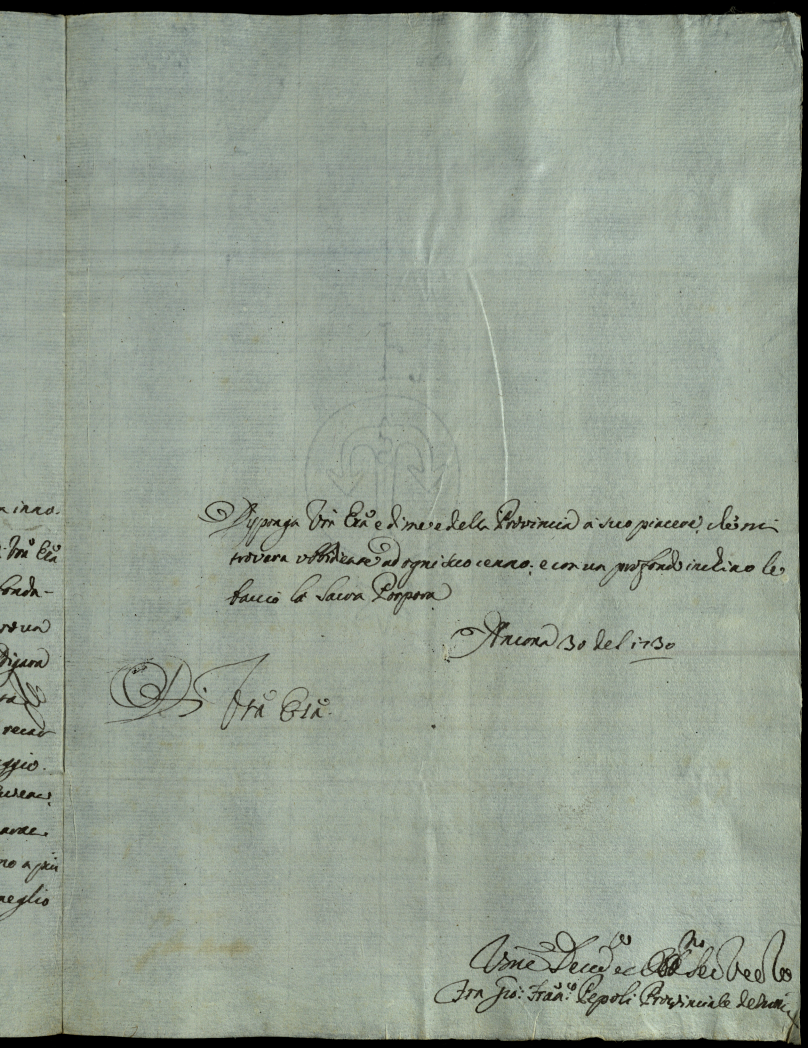 n inno-
Vrã Emã
fonda-
recar
ggio.
no a più
meglio
Disponga Vrã Emã e di me e della Provincia a suo piacere, che mi
troverà ubbidiente ad ogni suo cenno; e con un profondo inchino le
baccio la Sacra Porpora
Ancona 30 del 1730
D. Vrã Emã.
Umẽ Devõ ed Servo
Fra Gio: Franco Pepoli Provinciale